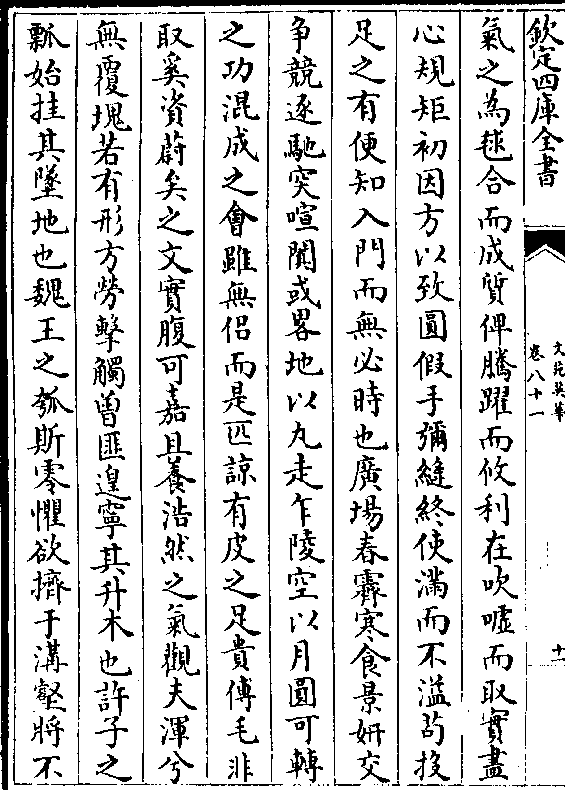 欽定四庫全書
文苑英華
卷八十一
十一
氣之為毬合而成質俾騰躍而攸利在吹噓而取實盡
心規矩初因方以致圓假手彌縫終使滿而不溢苟投
足之有便知入門而無必時也廣場春霽寒食景妍交
争競逐馳突喧闐或畧地以丸走乍陵空以月圓可轉
之功混成之會雖無侶而是匹諒有皮之足貴傅毛非
取奚資蔚矣之文實腹可嘉且養浩然之氣觀夫渾兮
無覆塊若有形方勞擊觸曽匪遑寧其升木也許子之
瓢始挂其墜地也魏王之瓠斯零懼欲擠于溝壑將不